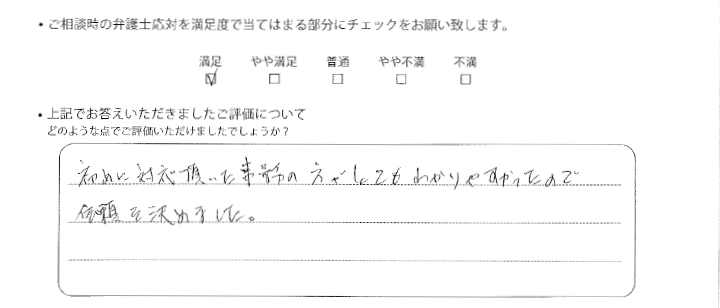 ・ご相談時の弁護士応対を満足度で当てはまる部分にチェックをお願い致します。
満足 やや満足 普通 やや不満 不満
☑ □ □ □ □
・上記でお答えいただきましたご評価について
どのような点でご評価いただけましたでしょうか？
初めに対応頂いた事務の方がとてもわかりやすかったので
依頼を決めました。